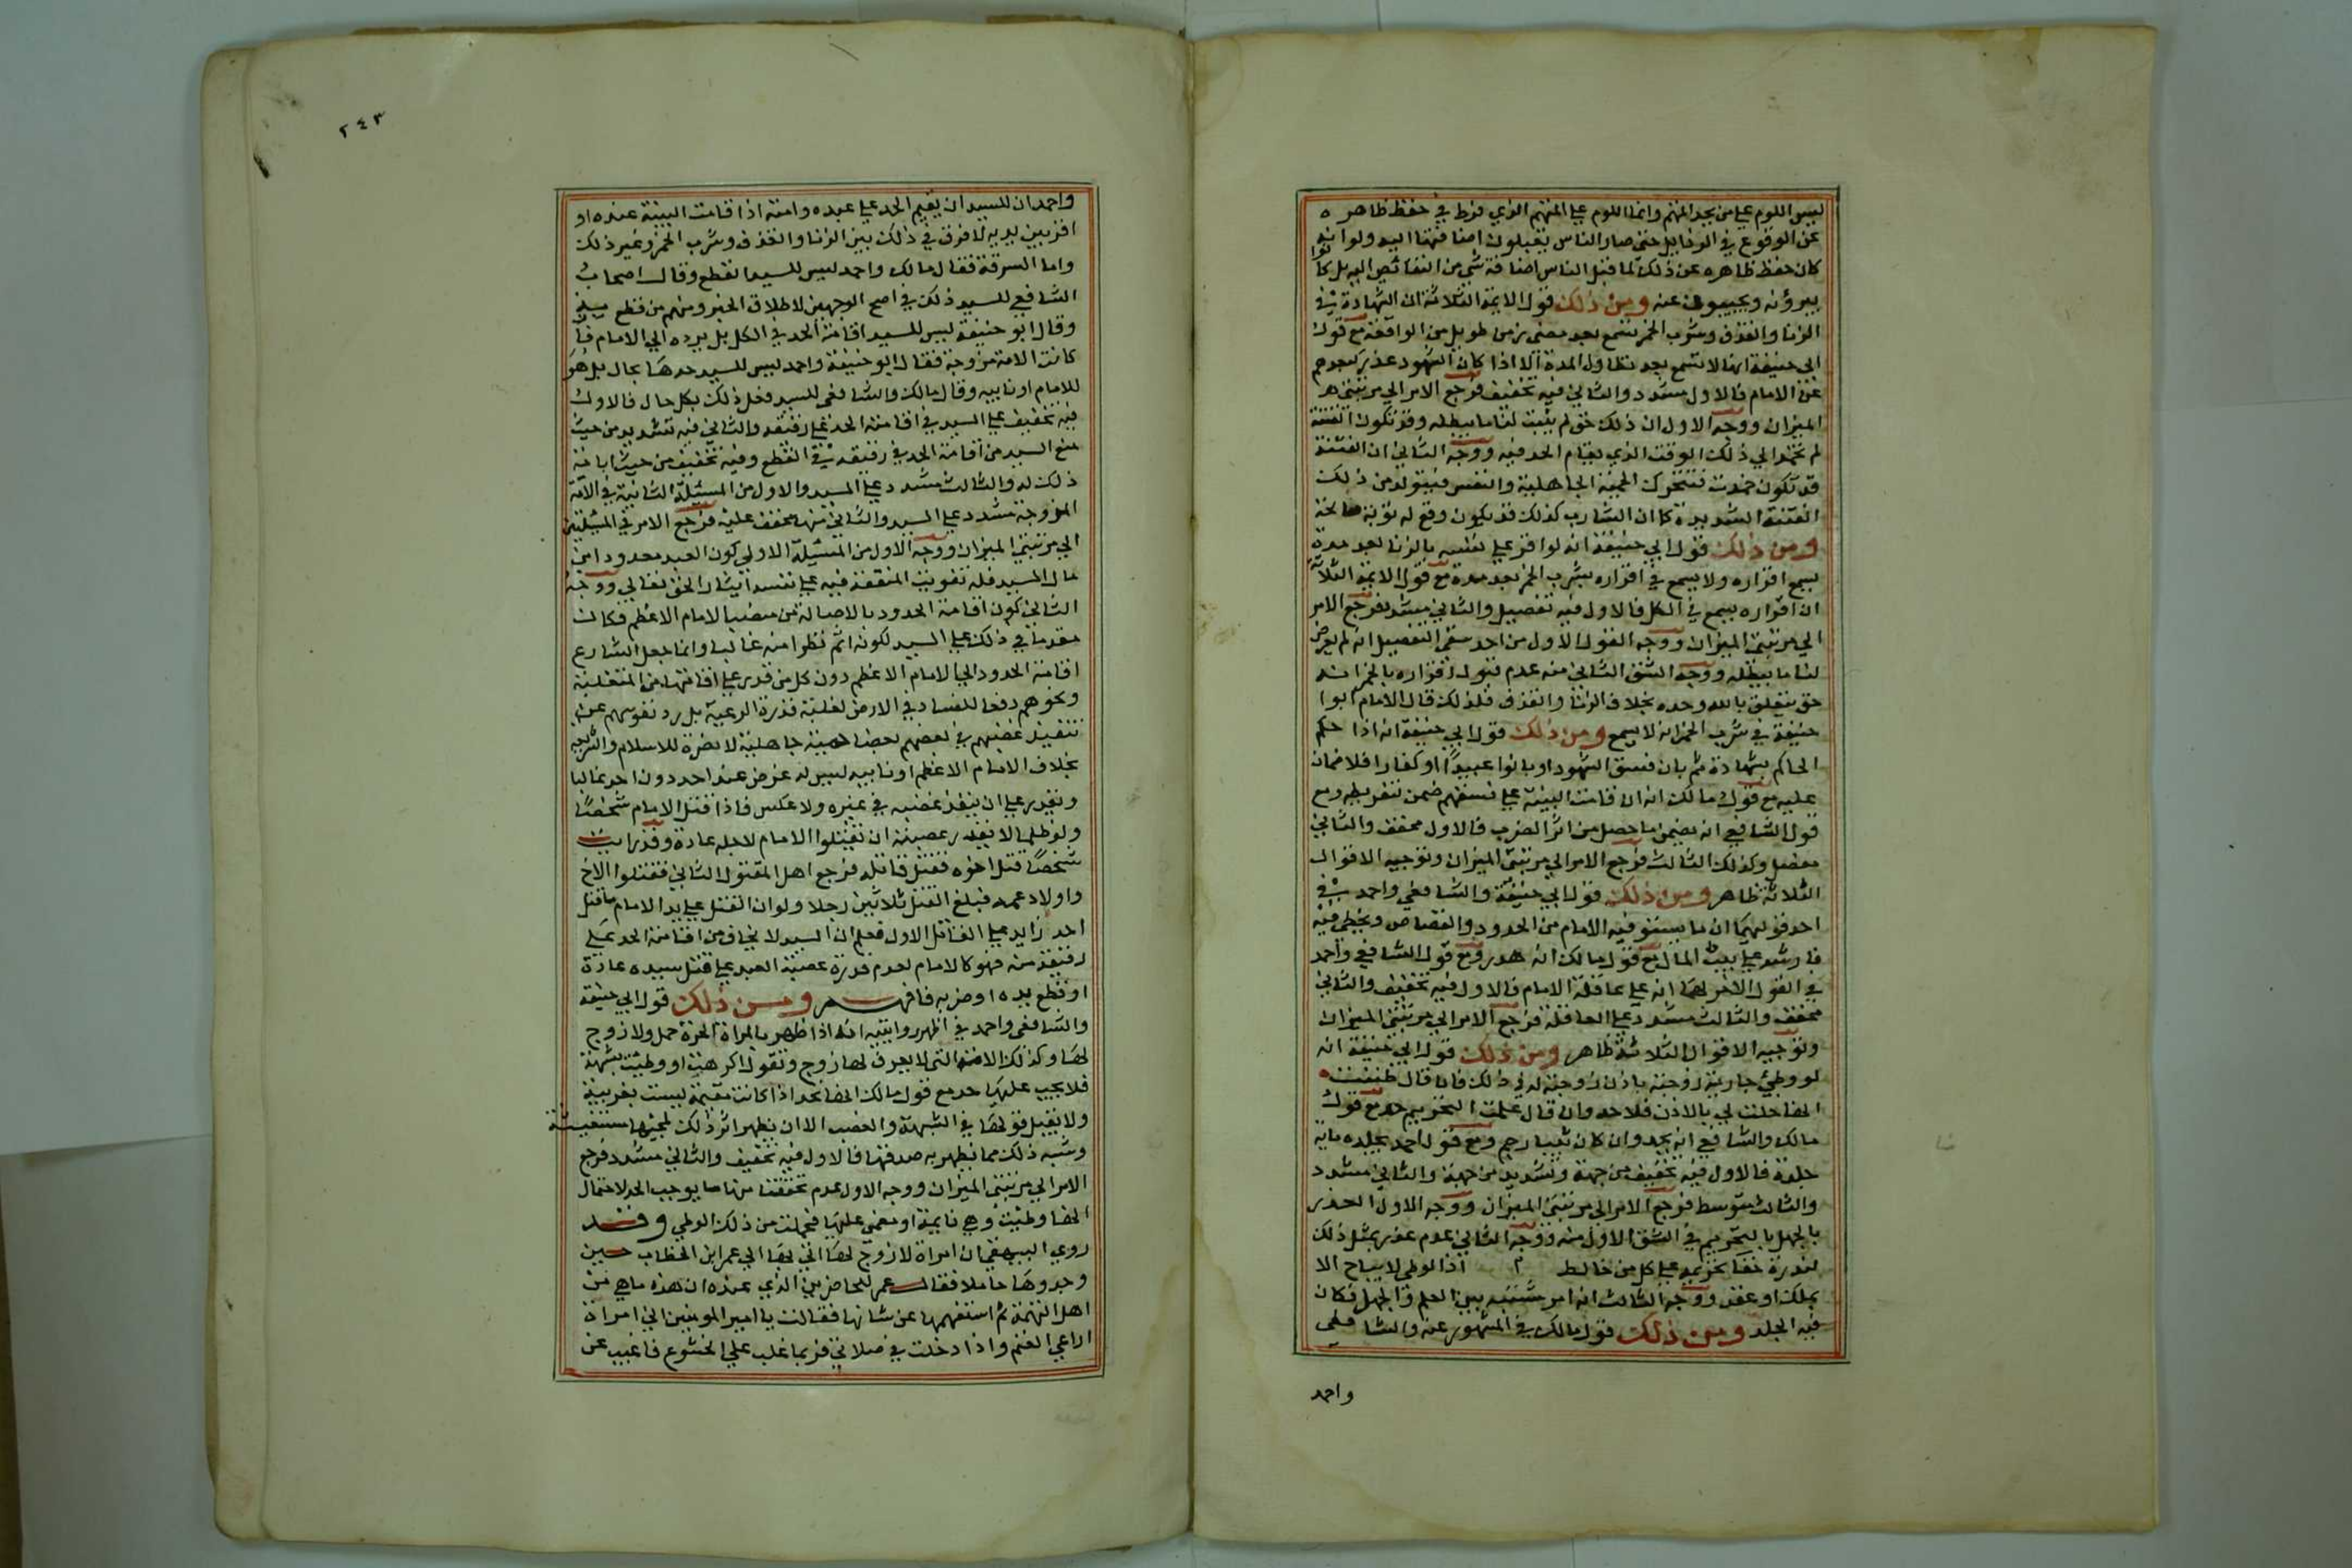 ليس اللوم علي من يجد المتهم وانما اللوم علي المتهم الذي فرط في حفظ ظاهره
عن الوقوع في الرذايل حتى صار الناس يقبلون اضافتها اليه ولو انه
كان حفظ ظاهره عن ذلك لما قبل الناس اضافة شي من النقائص اليه بل كانوا
يبرؤنه ويجيبون عنه ومن ذلك قول الايمة الثلاثة ان الشهادة في
الزنا والقذف وشرب الخمر تسمع بعد مضى زمن طويل من الواقعة مع قول
ابى حنيفة انها لا تسمع بعد تطاول المدة الا اذا كان للشهود عذر كبعدهم
عن الامام فالاول مشدد والثاني فيه تخفيف فرجع الامر الي مرتبتى
الميزان ووجه الاول ان ذلك حق لم يثبت لنا ما يبطله وقد تكون الفتنة
لم تخمد الي ذلك الوقت الذي يقام الحد فيه ووجه الثاني ان الفتنة
قد تكون خمدت فتتحرك الحمية الجاهلية والنفس فيتولد من ذلك
الفتنة الشديدة كما ان الشارب كذلك قد يكون وقع له توبة صالحة
ومن ذلك قول ابي حنيفة انه لو اقر علي نفسه بالزنا بعد مدة
يسمع اقراره ولا يسمع في اقراره بشرب الخمر بعد مدة مع قول الايمة الثلاثة
ان اقراره يسمع في الكل فالاول فيه تفصيل والثاني مشدد فرجع الامر
الي مرتبتى الميزان ووجه القول الاول من احد شقى التفصيل انه لم يعرض
لنا ما يبطله ووجه الشق الثاني منه عدم قبول اقراره بالخمر انه
حق يتعلق بالله وحده بخلاف الزنا والقذف فلذلك قال الامام ابوا
حنيفة في شرب الخمر انه لا يسمع ومن ذلك قول ابي حنيفة انه اذا حكم
الحاكم بشهادة ثم بان فسق الشهود او بانوا عبيدا او كفارا فلا ضمان
عليه مع قول مالك انه ان قامت البينة علي فسقهم ضمن لتفريطه ومع
قول الشافعي انه يضمن ما حصل من اثر الضرب فالاول مخفف والثاني
مفصل وكذلك الثالث فرجع الامر الي مرتبتى الميزان وتوجيه الاقوال
الثلاثة ظاهر ومن ذلك قول ابي حنيفة والشافعي واحمد في
احد قوليهما ان ما يستوفيه الامام من الحدود والقصاص ويخطي فيه
فارشه علي بيت المال مع قول مالك انه هدر ومع قول الشافعي واحمد
في القول الاخر لهما انه علي عاقلة الامام فالاول فيه تخفيف والثاني
مخفف والثالث مشدد علي العاقلة فرجع الامر الي مرتبتى الميزان
وتوجيه الاقوال الثلاثة ظاهر ومن ذلك قول ابي حنيفة انه
لو وطئ جارية زوجته باذن زوجته له في ذلك فان قال ظننت
انها حلت لي بالاذن فلا حد وان قال علمت التحريم حد مع قول
مالك والشافعي انه يحد وان كان ثيبا رجم ومع قول احمد يجلد مايه
جلدة فالاول فيه تخفيف من جهة وتشديد من جهة والثاني مشدد
والثالث متوسط فرجع الامر الي مرتبتى الميزان ووجه الاول العذر
بالجهل بالتحريم في الشق الاول منه ووجه الثاني عدم عذره بمثل ذلك
لندرة خفا تحريمه علي كل من خالط اذا لوطى لا يباح الا
بملك او عقد ووجه الثالث انه امر مشتبه بين العلم والجهل فكان
فيه الجلد ومن ذلك قول مالك في المشهور عنه والشافعي
واحمد
٢٤٣
واحمد ان للسيد ان يقيم الحد علي عبده وامته اذا قامت البينة عنده او
اقر بين يديه لا فرق في ذلك بين الزنا والقذف وشرب الخمر وغير ذلك
واما السرقة فقال مالك واحمد ليس للسيد القطع وقال اصحاب
الشافعي للسيد ذلك في اصح الوجهين لاطلاق الخبر ومنهم من قطع
وقال ابو حنيفة ليس للسيد اقامة الحد في الكل بل يرده الي الامام فان
كانت الامة مزوجة فقال ابو حنيفة واحمد ليس للسيد حدها بحال بل هو
للامام او نايبه وقال مالك والشافعي للسيد فعل ذلك بكل حال فالاول
فيه تخفيف علي السيد في اقامته الحد علي رقيقه والثاني فيه تشديد من حيث
منع السيد من اقامة الحد في رقيقه في القطع وفيه تخفيف من حيث اباحة
ذلك له والثالث مشدد علي السيد والاول من المسئلة الثانية في الامة
المزوجة مشدد علي السيد والثاني منها مخفف عليه فرجع الامر في المسئلتين
الي مرتبتي الميزان ووجه الاول من المسئلة الاولي كون العبد معدود امن
مال السيد فله تفويت المنفعة فيه علي نفسه ايثار الحق تعالي ووجه
الثاني كون اقامة الحدود بالاصالة من منصب الامام الاعظم فكان
مقدما في ذلك علي السيد لكونه اتم نظرا منه غالبا وانما جعل الشارع
اقامة الحدود الي الامام الاعظم دون كل من قدر علي اقامتها من المتغلبة
ونحوهم دفعا للفساد في الارض لغلبة قدرة الرعية بل رد نفوسهم عن
تنفيذ غضبهم في بعضهم بعضا حمية جاهلية لا نصرة للاسلام والشريعة
بخلاف الامام الاعظم او نايبه ليس له غرض عند احد دون احد غالبا
ويقدر علي ان ينفذ غضبه في غيره ولا عكس فاذا قتل الامام شخصا
ولو ظلما لا تقدر عصبته ان تقتلوا الامام لاجله عادة وقد رايت
شخصا قتل اخوه فقتل قاتله فرجع اهل المقتول الثاني فقتلوا الاخ
واولاد عمه فبلغ القتل ثلاثين رجلا ولو ان القتل علي يد الامام ما قتل
احد زايد علي القاتل الاول فعلم ان السيد لا يخاف من اقامة الحد علي
رقيقه منه فهو كالامام لعدم قدرة عصبة العبد علي قتل سيده عادة
او قطع يده او ضربه فافهم ومن ذلك قول ابي حنيفة
والشافعى واحمد في اظهر روايتيه انه اذا ظهر بالمراة الحرة حمل ولا زوج
لها وكذلك الامة التي لا يعرف لها زوج وتقول اكرهت او وطئت بشبهة
فلا يجب عليها حد مع قول مالك انها تحد اذا كانت مقيمة ليست بغريبة
ولا يقبل قولها في الشبهة والغصب الا ان يظهر اثر ذلك لمجيئها مستغيثة
وشبه ذلك مما يظهر به صدقها فالاول فيه تخفيف والثاني مشدد فرجع
الامر الي مرتبتى الميزان ووجه الاول عدم تحققنا منها ما يوجب الحد لاحتمال
انها وطئت وهي نايمة او مغمى عليها فحملت من ذلك الوطي وقد
روي البيهقي ان امراة لا زوج لها اتي بها الي عمر ابن الخطاب حين
وجدوها حاملا فقال عمر للحاضرين الذي عنده ان هذه ما هي من
اهل التهمة ثم استفهمها عن شانها فقالت يا امير المومنين اني امراة
اراعي الغنم واذا دخلت في صلاتي فربما غلب علي الخشوع فاغيب عن